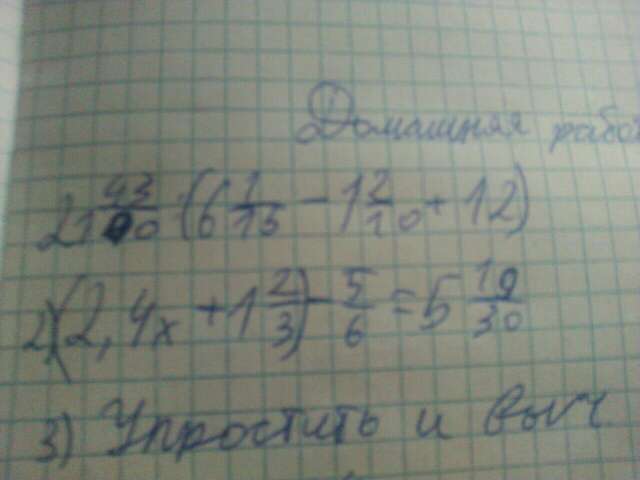 Домашняя работ
21 43/100 : (6 1/15 - 1 2/10 + 12)
2) (2,4x + 1 2/3) - 5/6 = 5 19/30
3) Упростить и выч